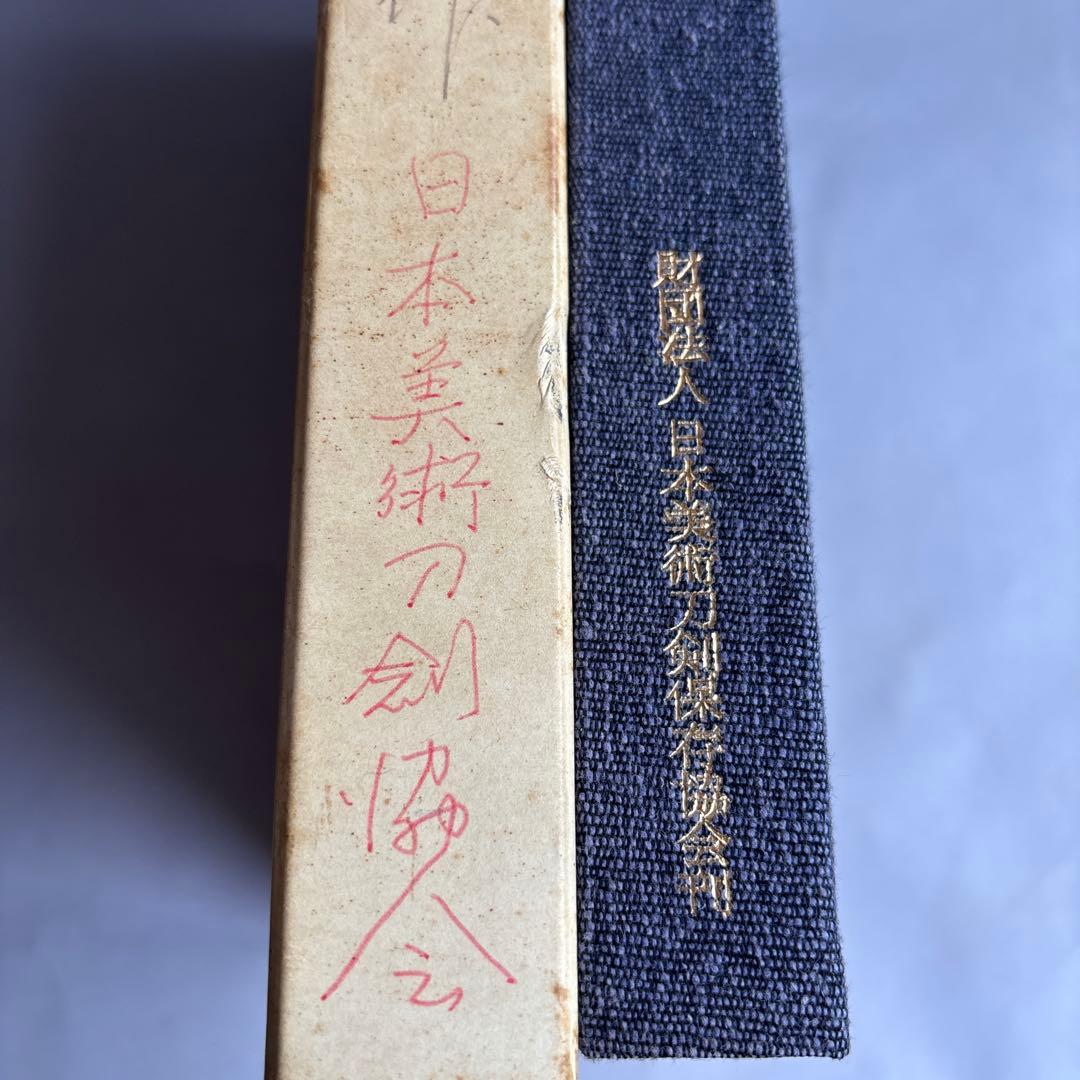 日本美術刀剣協会
財団法人 日本美術刀剣保存協会刊